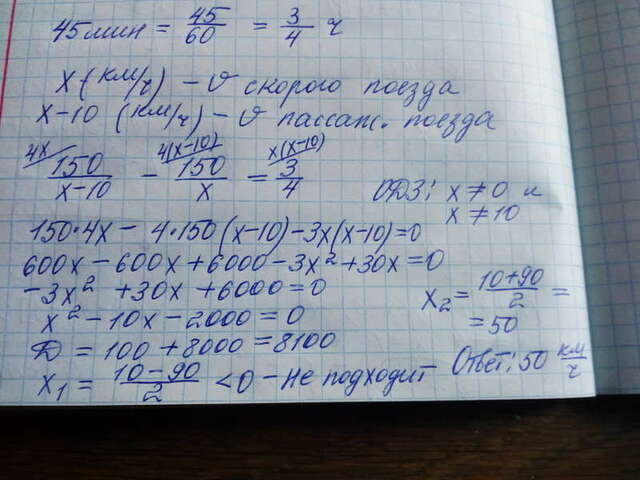 45 мин = 45/60 = 3/4 ч
x (км/ч) – v скорого поезда
x–10 (км/ч) – v пассаж. поезда
4x 4(x–10) x(x–10)
150/(x–10) – 150/x = 3/4
ОДЗ: x ≠ 0 и
x ≠ 10
150·4x – 4·150(x–10) – 3x(x–10) = 0
600x – 600x + 6000 – 3x² + 30x = 0
–3x² + 30x + 6000 = 0
x² – 10x – 2000 = 0
D = 100 + 8000 = 8100
x₁ = (10–90)/2 < 0 – не подходит
x₂ = (10+90)/2 =
= 50
Ответ: 50 км/ч